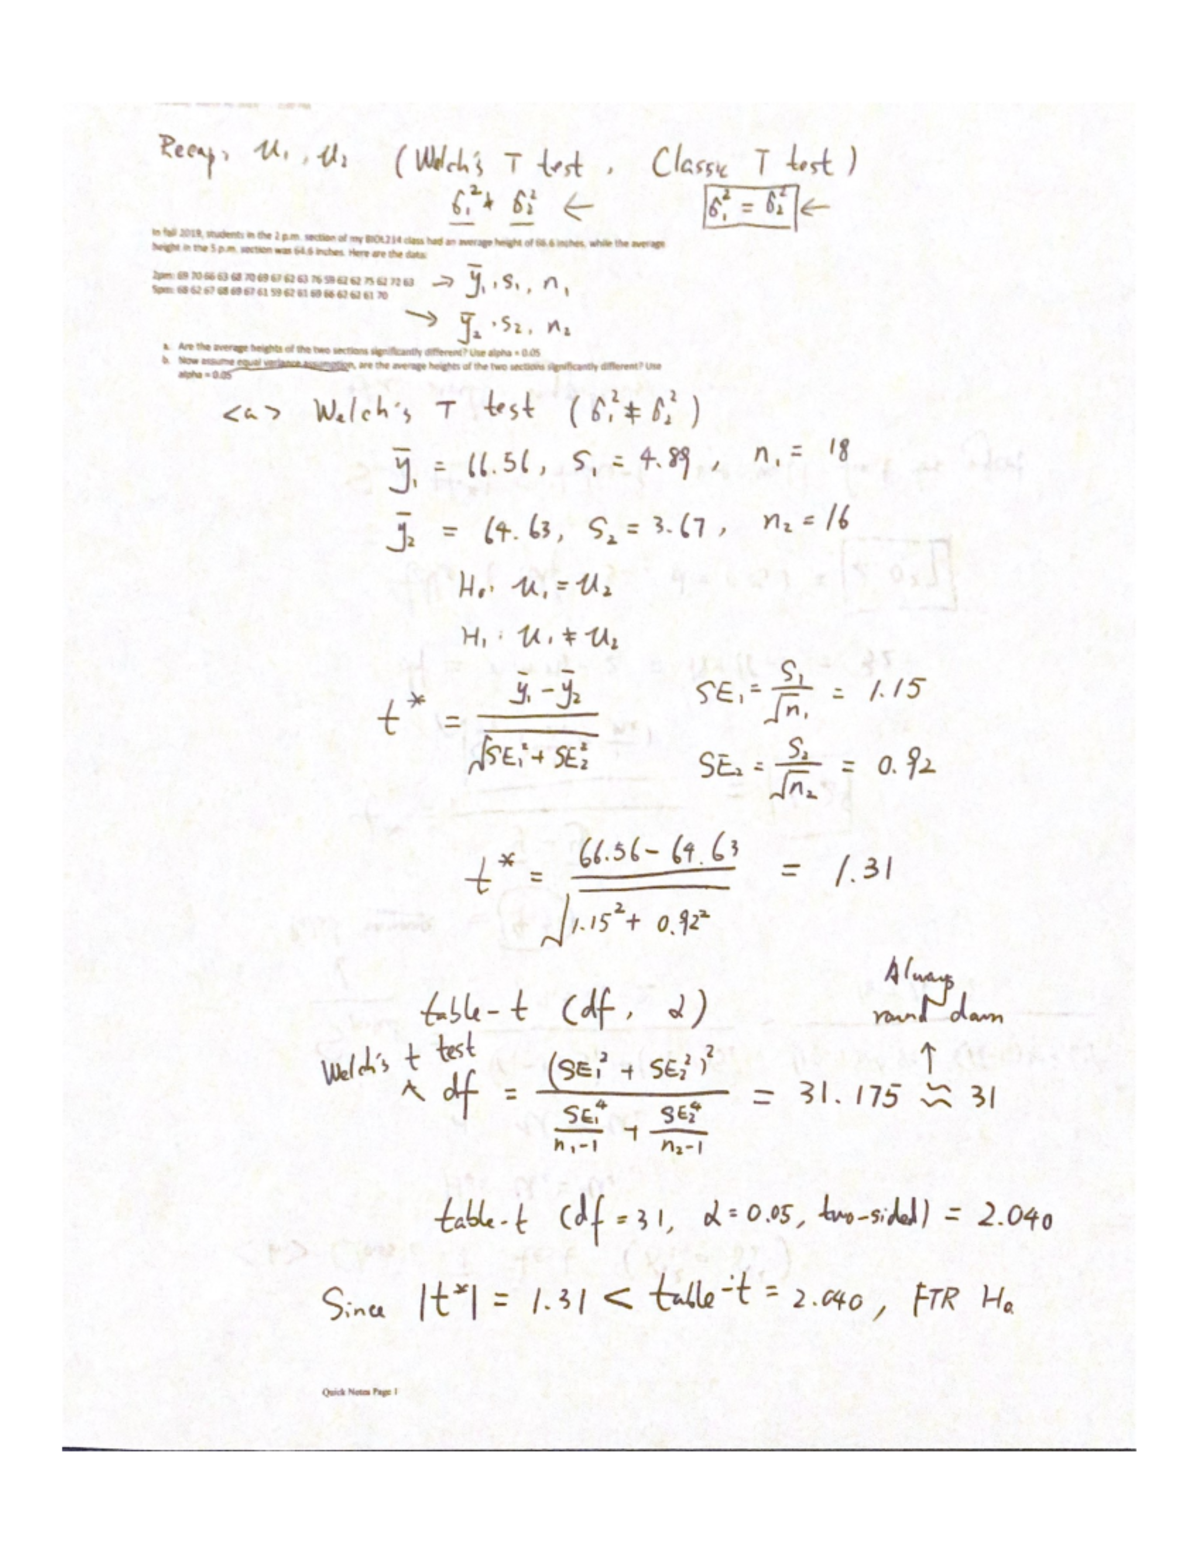 Recap, u₁, u₂ (Welch's T test, Classic T test)
σ₁² ≠ σ₂² ← σ₁² = σ₂² ←
In fall 2019, students in the 2 p.m. section of my BIOL214 class had an average height of 66.6 inches, while the average
height in the 5 p.m. section was 64.6 inches. Here are the data:
2pm: 69 70 66 63 68 70 69 67 62 63 76 59 62 62 75 62 72 63 → ȳ₁, s₁, n₁
5pm: 68 62 67 68 69 67 61 59 62 61 69 66 62 62 61 70
→ ȳ₂, s₂, n₂
a. Are the average heights of the two sections significantly different? Use alpha = 0.05
b. Now assume equal variance assumption, are the average heights of the two sections significantly different? Use
alpha = 0.05
<a> Welch's T test (σ₁² ≠ σ₂²)
ȳ₁ = 66.56, S₁ = 4.89, n₁ = 18
ȳ₂ = 64.63, S₂ = 3.67, n₂ = 16
H₀: u₁ = u₂
H₁: u₁ ≠ u₂
t* = (ȳ₁ - ȳ₂) / √(SE₁² + SE₂²) SE₁ = S₁/√n₁ = 1.15
SE₂ = S₂/√n₂ = 0.92
t* = (66.56 - 64.63) / √(1.15² + 0.92²) = 1.31
Always
table-t (df, α) round down
Welch's t test ↑
^ df = (SE₁² + SE₂²)² / (SE₁⁴/(n₁-1) + SE₂⁴/(n₂-1)) = 31.175 ≈ 31
table-t (df = 31, α = 0.05, two-sided) = 2.040
Since |t*| = 1.31 < table-t = 2.040, FTR H₀
Quick Notes Page 1